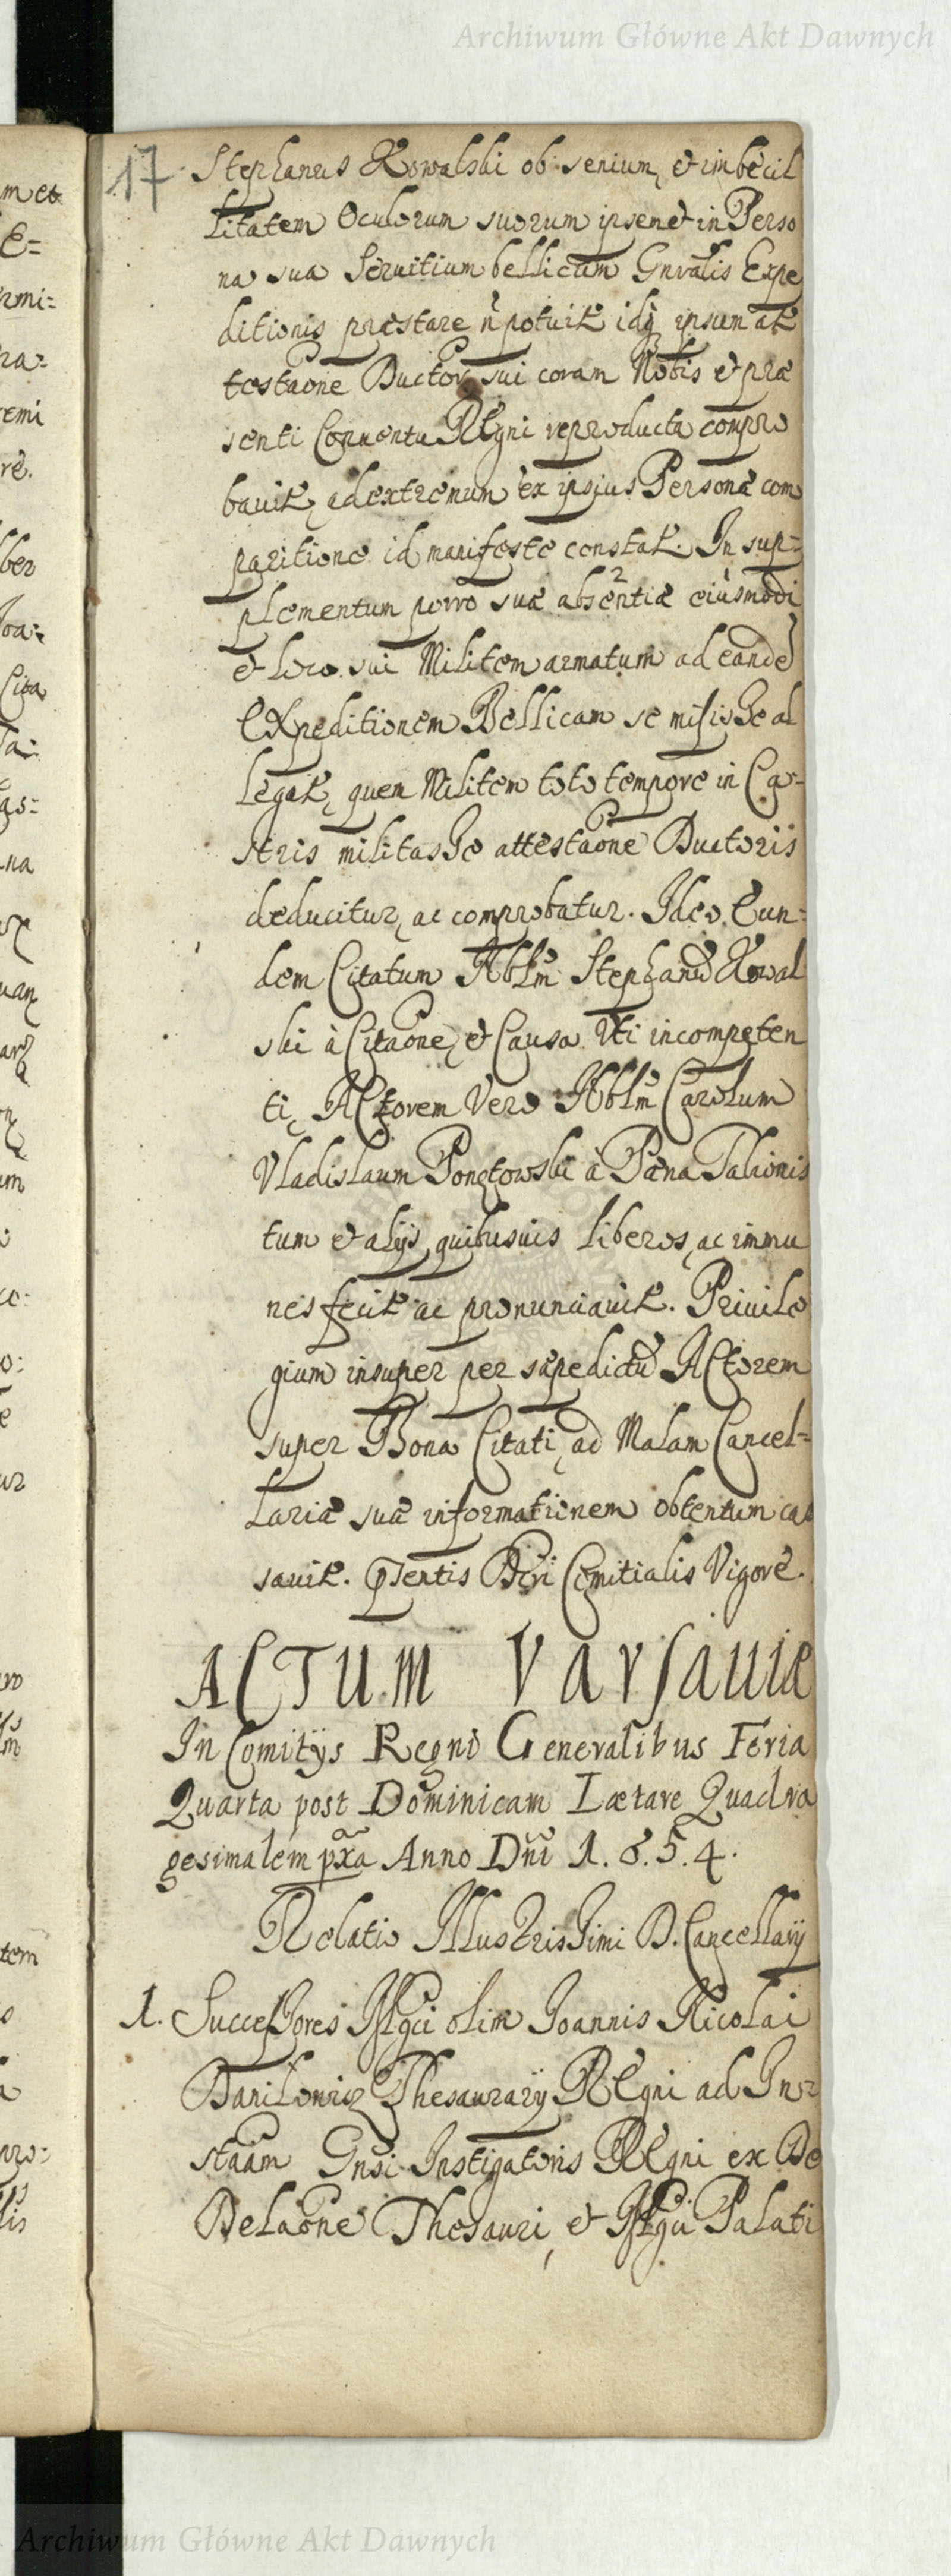 Archiwum Główne Akt Dawnych
17
Stephanus Kowalski ob senium, et imbecil
litatem Oculorum suorum ipsemet in Perso
na sua Seruitium bellicum Gnralis Expe
ditionis præstare ñ potuit idq ipsum at
testaone Ductor sui coram Nobis et præ
senti Conuentu Regni reproducta compro
bauit, ad extremum ex ipsius Personæ com
paritione id manifeste constat. In sup=
plementum porro suæ absentiæ eiusmodi
et loco sui Militem armatum ad eandē
Expeditionem Bellicam se misisse al
legat, quem Militem toto tempore in Ca=
stris militasse attestaone Ductoris
deducitur, ac comprobatur. Ideo Eun=
dem Citatum Nblm Stephanū Kowal
ski à Citaone, et Causa Vti incompeten
ti, Actorem Vero Nblm Carolum
Vladislaum Ponętowski à Pæna Talionis
tum et alijs quibusuis liberos, ac immu
nes fecit ac pronunciauit. Priuile
gium insuper per sæpedictū Actorem
super Bona Citati, ad Malam Cancel=
lariæ suæ informationem obtentum cas
sauit. Pñtis Dcri Comitialis Vigore.
ACTUM Varsauiæ
In Comitijs Regni Generalibus Feria
Quarta post Dominicam Lætare Quadra
gesimalem pxa Anno Dni 1.6.5.4.
Relatio Illustrissimi D. Cancellarij
1. Successores Mfgci olim Joannis Nicolai
Daniłowicz Thesaurarij Regni ad In=
staam Gnsi Instigatoris Regni ex De
Delaone Thesauri, et Mfgci Palati
m et
E=
rmi=
ra=
remi
re.
Cita
as=
na
um
tem
lis
Archiwum Główne Akt Dawnych